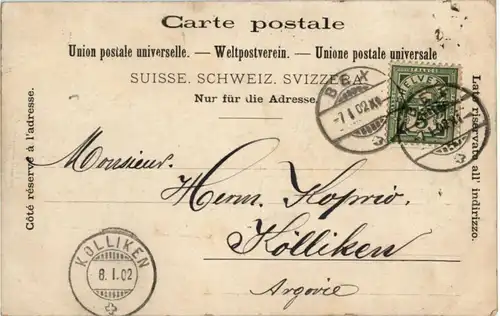 Carte postale
Union postale universelle. — Weltpostverein. — Unione postale universale
SUISSE. SCHWEIZ. SVIZZERA.
Nur für die Adresse.
Côté réservé à l'adresse.
Lato riservato all' indirizzo.
BEX
-7.I.02.XI
HELVETIA
Monsieur.
Herm. Koprio.
Kölliken
Argovie
KÖLLIKEN
8.I.02